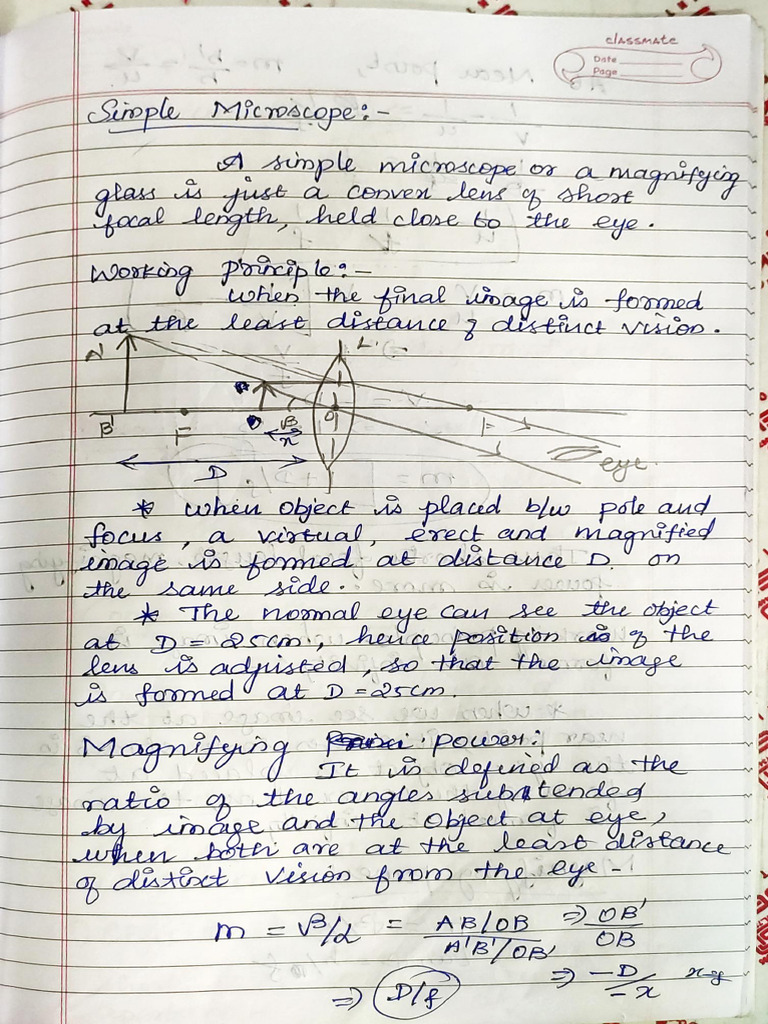 classmate
Date
Page
Simple Microscope:-
A simple microscope or a magnifying
glass is just a convex lens of short
focal length, held close to the eye.
Working principle:-
when the final image is formed
at the least distance of distinct vision.
B' F β O F
x
D
eye
* when object is placed b/w pole and
focus, a virtual, erect and magnified
image is formed at distance D. on
the same side.
* The normal eye can see the object
at D = 25cm, hence position is of the
lens is adjusted, so that the image
is formed at D = 25cm.
Magnifying power:
It is defined as the
ratio of the angles subtended
by image and the object at eye,
when both are at the least distance
of distinct vision from the eye -
m = β/α = AB/OB / A'B'/OB' ⇒ OB'/OB
⇒ -D/-x
⇒ D/f